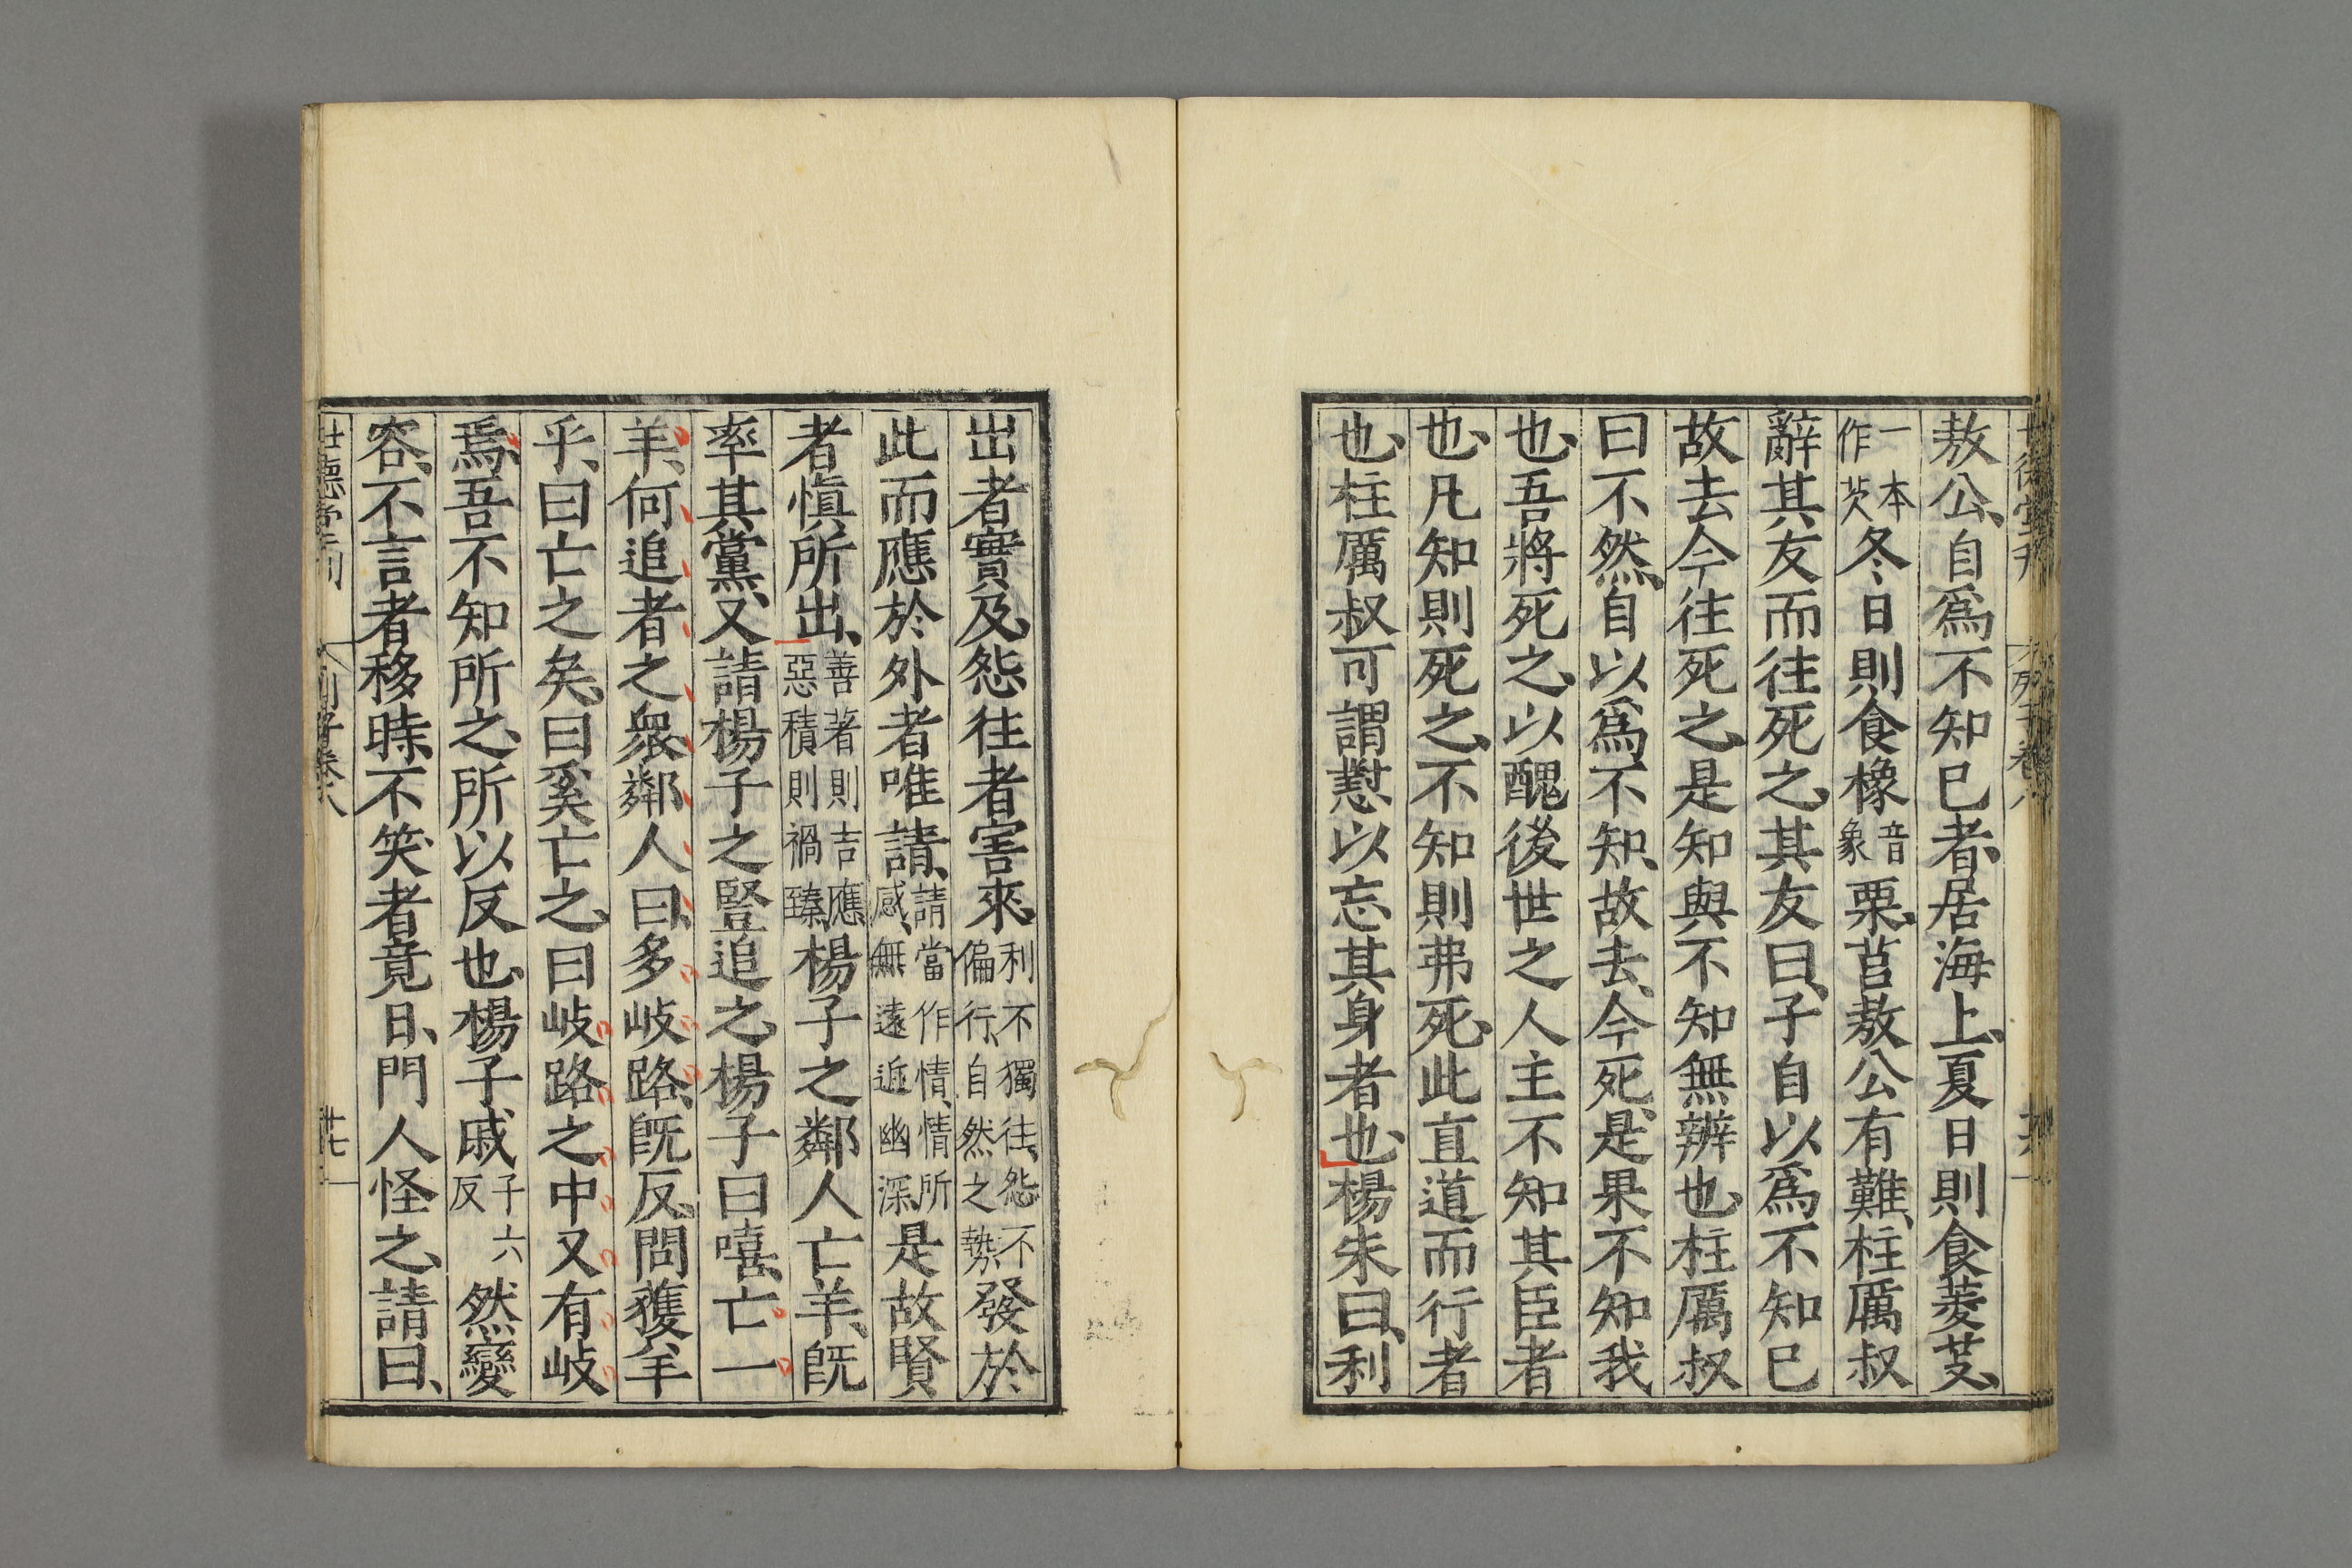 敖公、自爲不知已者、居海上、夏日則食菱芰、
一本作茨冬日則食橡音象栗、莒敖公有難、柱厲叔
辭其友而往死之、其友曰、子自以爲不知已
故去、今往死之、是知與不知無辨也、柱厲叔
曰不然、自以爲不知、故去、今死、是果不知我
也、吾將死之、以醜後世之人主不知其臣者
也、凡知則死之、不知則弗死、此直道而行者
也、柱厲叔可謂懟以忘其身者也、楊朱曰、利
出者實及、怨往者害來、利不獨往、怨不偏行、自然之勢發於
此而應於外者唯請、請當作情、情所感、無遠近幽深是故賢
者慎所出、善著則吉應惡積則禍臻楊子之鄰人亡羊、既
率其黨、又請楊子之豎追之、楊子曰嘻、亡一
羊、何追者之衆、鄰人曰、多岐路、既反、問獲羊
乎、曰亡之矣、曰奚亡之、曰岐路之中又有岐
焉、吾不知所之、所以反也、楊子戚子六反然變
容、不言者移時、不笑者竟日、門人怪之、請曰、
世德堂刊 列子卷八 十七